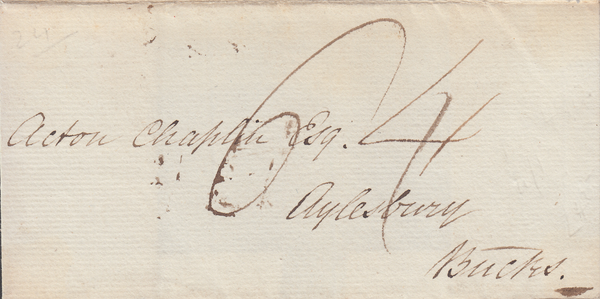 Acton Chaplin Esq.
64
Aylesbury
Bucks.